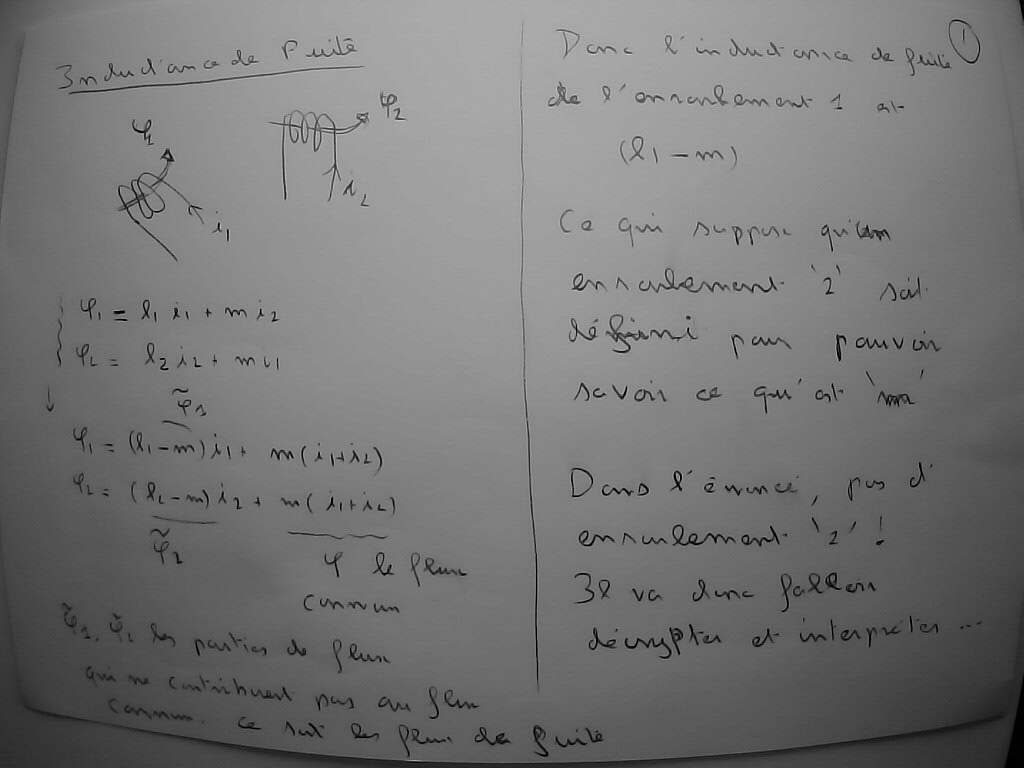 Inductance de Fuite
φ₂
φ₁
i₂
i₁
φ₁ = l₁ i₁ + m i₂
φ₂ = l₂ i₂ + m i₁
φ̃₁
φ₁ = (l₁-m) i₁ + m(i₁+i₂)
φ₂ = (l₂-m) i₂ + m(i₁+i₂)
φ̃₂
φ le flux
commun
φ̃₁, φ̃₂ les parties de flux
qui ne contribuent pas au flux
commun. ce sont les flux de fuite
1
Donc l'inductance de fuite
de l'enroulement 1 est
(l₁ - m)
Ce qui suppose qu'un
enroulement '2' soit
défini pour pouvoir
savoir ce qu'est 'm'
Dans l'énoncé, pas d'
enroulement '2' !
Il va donc falloir
décrypter et interpréter ...